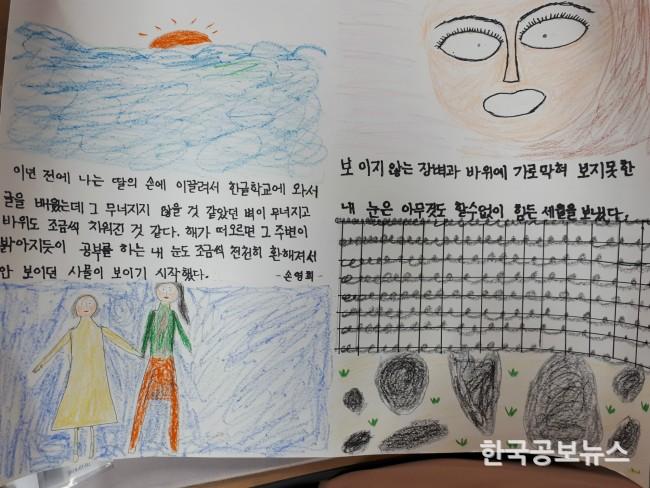 이년 전에 나는 딸의 손에 이끌려서 한글학교에 와서
글을 배웠는데 그 무너지지 않을 것 같았던 벽이 무너지고
바위도 조금씩 치워진 것 같다. 해가 떠오르면 그 주변이
밝아지듯이 공부를 하는 내 눈도 조금씩 천천히 환해져서
안 보이던 사물이 보이기 시작했다. -손영희-
보이지않는 장벽과 바위에 가로막혀 보지못한
내 눈은 아무것도 할수없이 힘든 세월을 보냈다.
한국공보뉴스